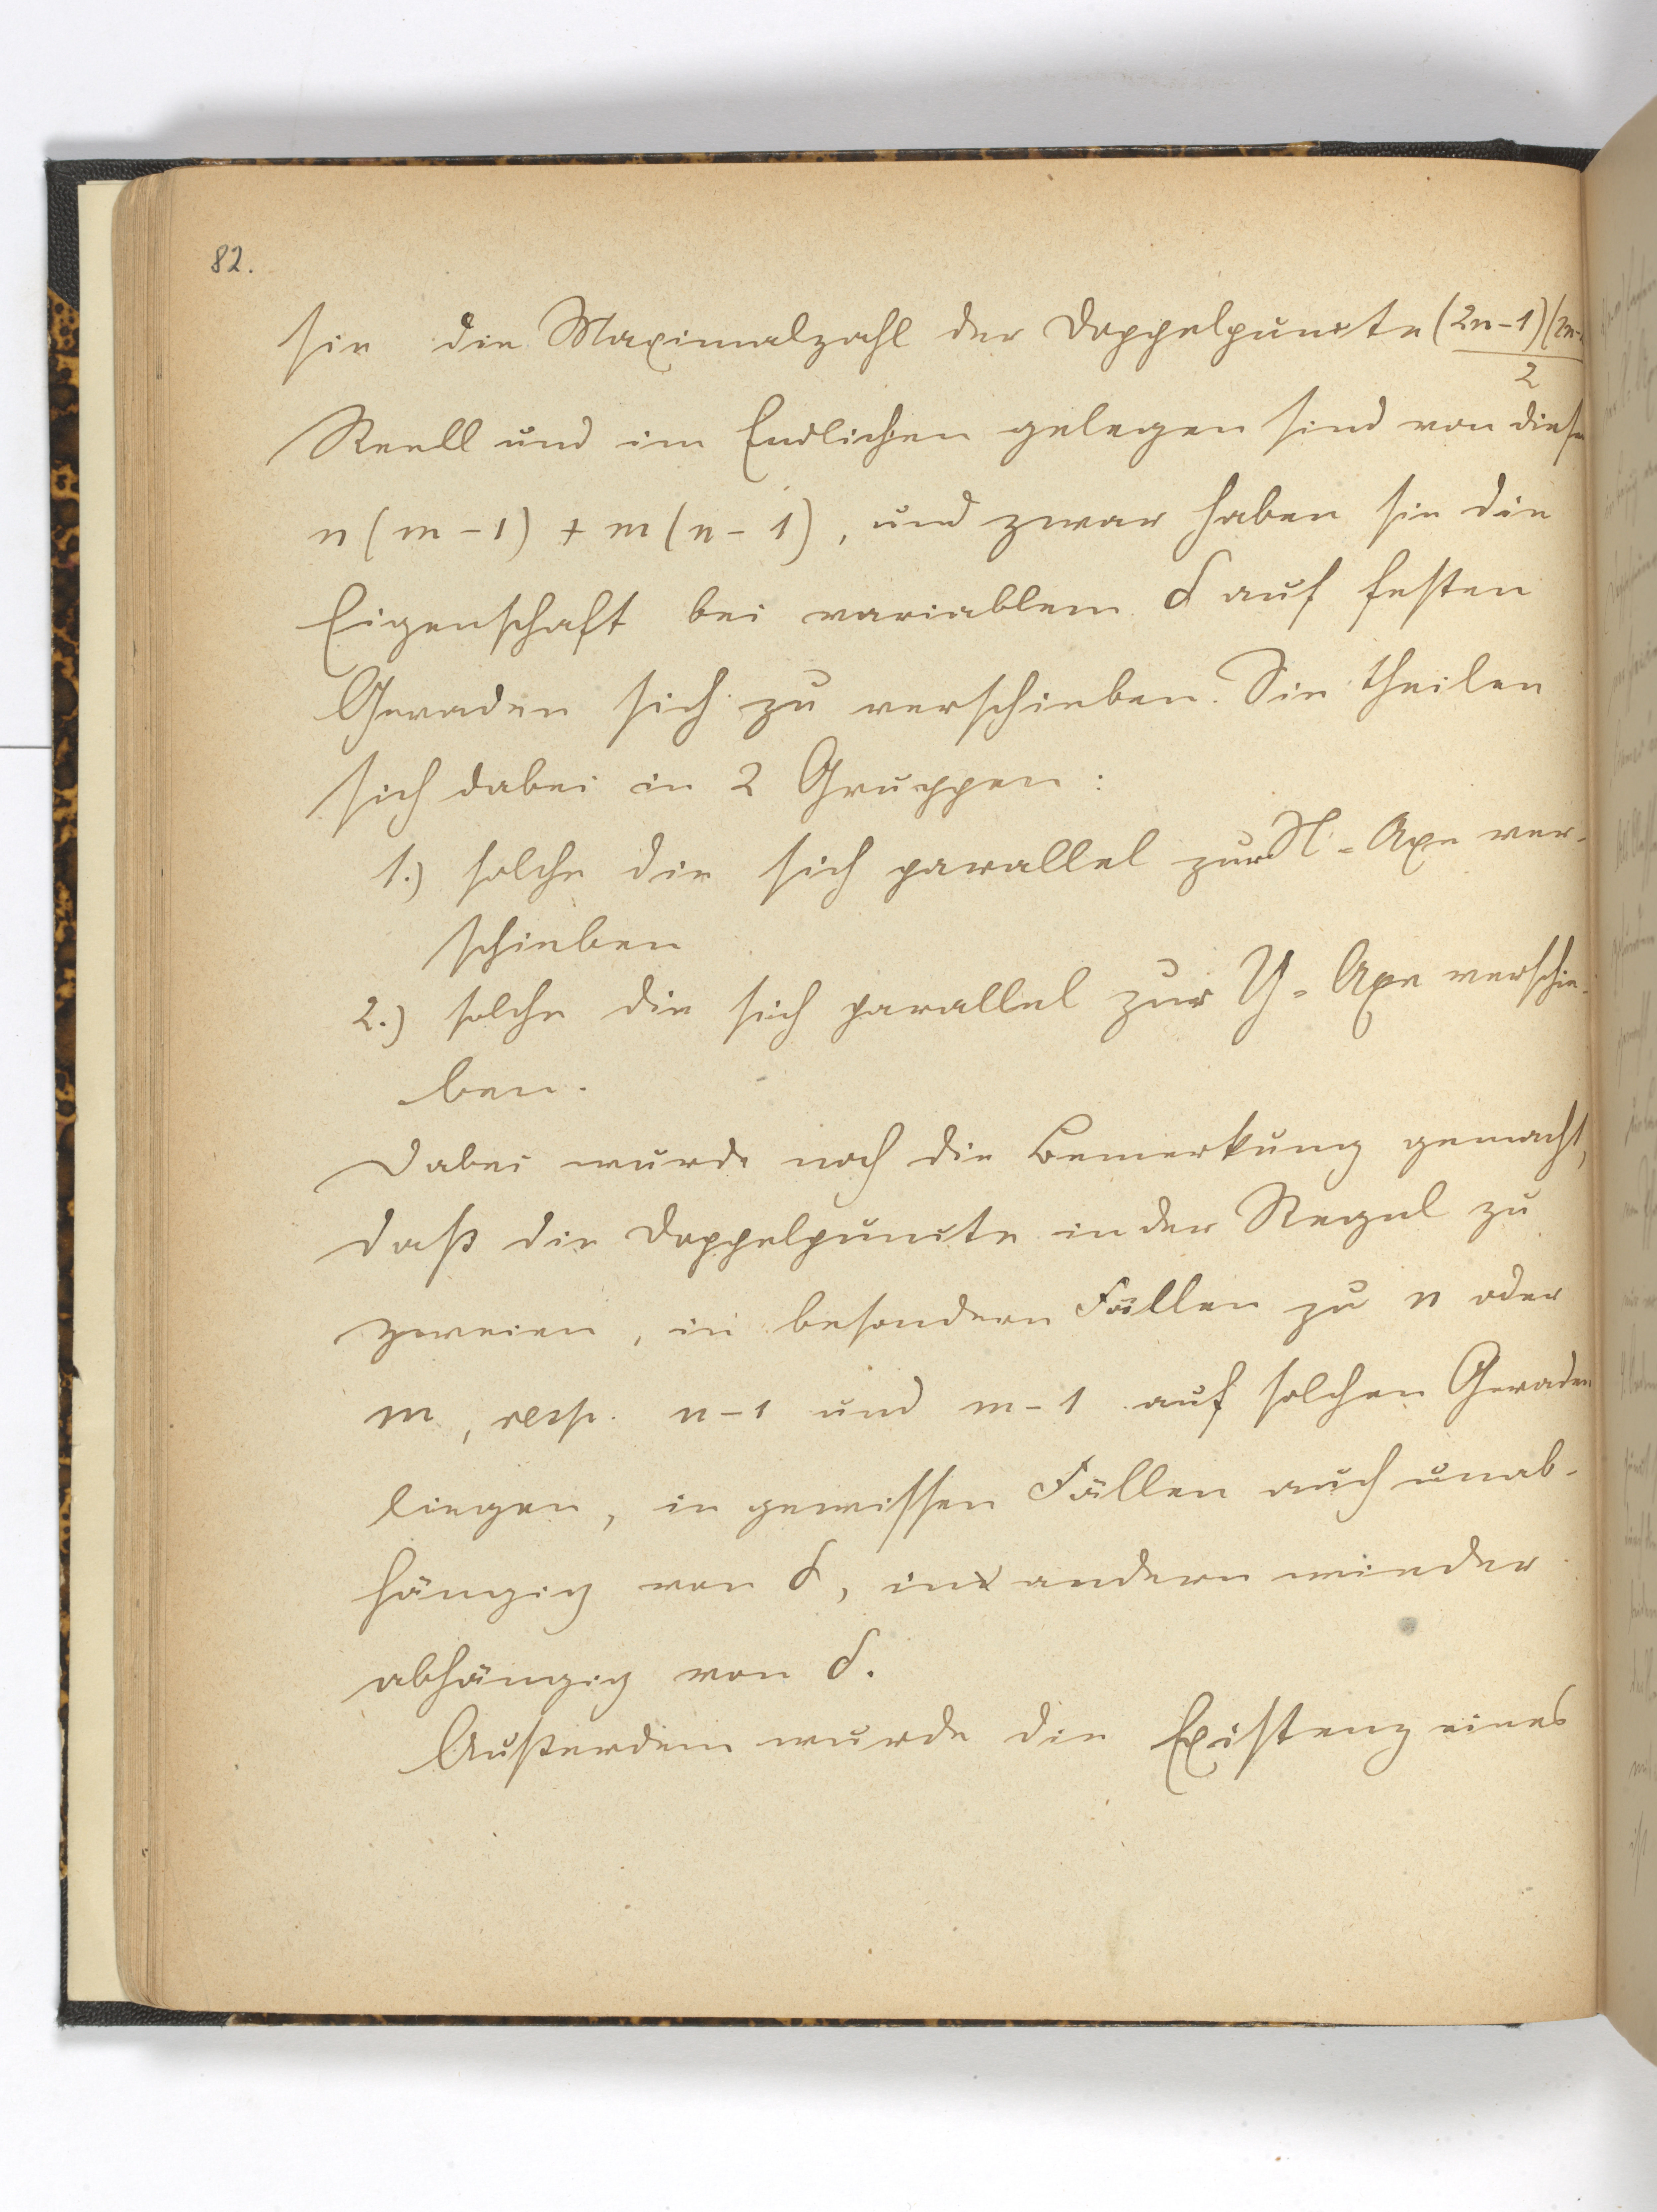 82.
sie die Maximalzahl der Doppelpuncte (2n-1)(2n-
2
Reell und im Endlichen gelegen sind von diesen
n(m-1) + m(n-1), und zwar haben sie die
Eigenschaft bei variablem δ auf festen
Geraden sich zu verschieben. Sie theilen
sich dabei in 2 Gruppen:
1.) solche die sich parallel zur X-Axe ver-
schieben
2.) solche die sich parallel zur Y-Axe verschie-
ben.
Dabei wurde noch die Bemerkung gemacht,
daß die Doppelpuncte in der Regel zu
zweien, in besondern Fällen zu n oder
m, resp. n-1 und m-1 auf solchen Geraden
liegen, in gewissen Fällen auch unab-
hängig von δ, in andern wieder
abhängig von δ.
Außerdem wurde die Existenz eines